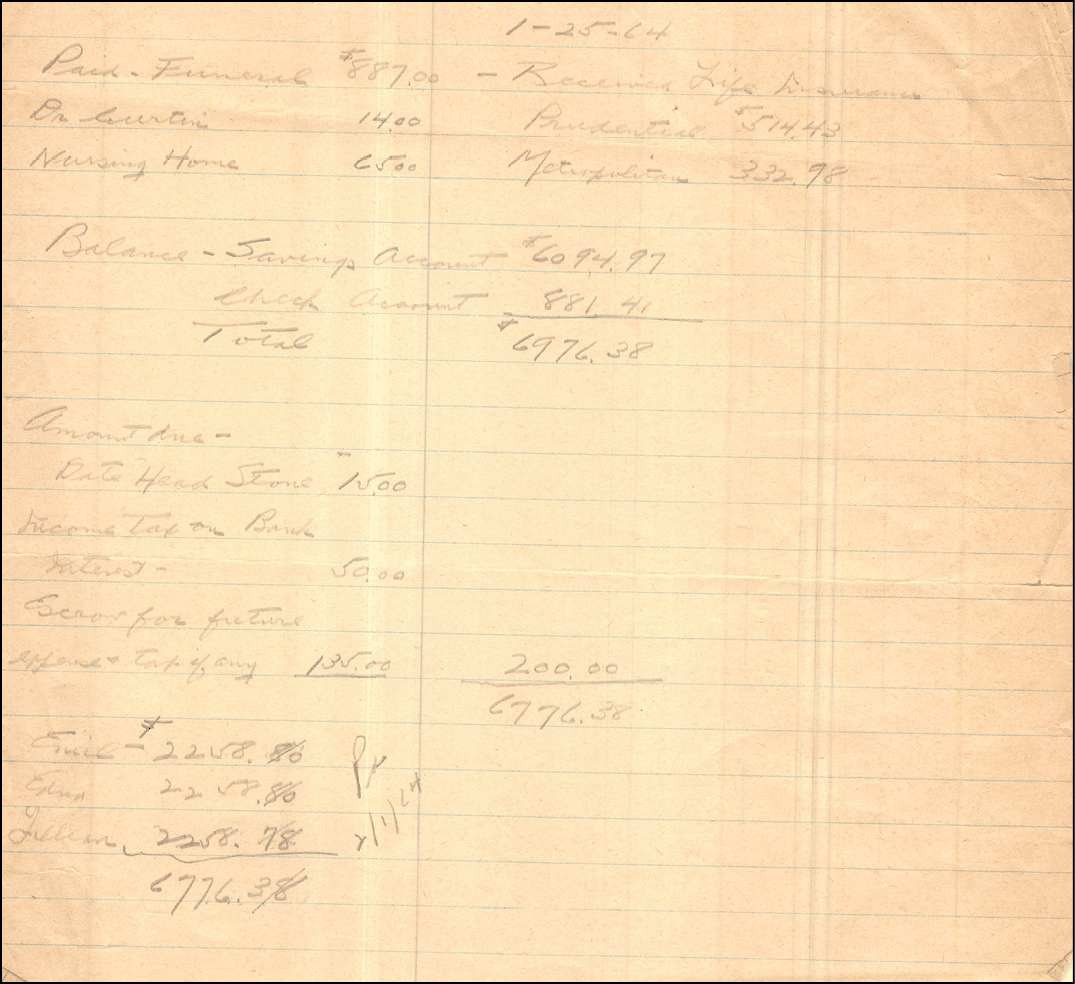 1-25-64
Paid - Funeral $887.00 - Received Life Insurance
Dr Curtin 14.00 Prudential $514.43
Nursing Home 65.00 Metropolitan 332.98
Balance - Savings Account $6094.97
Check Account 881.41
Total $6976.38
Amount due -
Date Head Stone 15.00
Income Tax on Bank
Interest - 50.00
Escrow for future
expense & tax if any 135.00 200.00
6776.38
$2258.80
Edna 2258.80
2258.78
6776.38